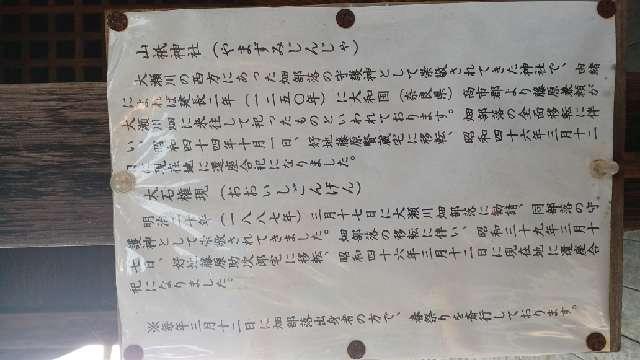 山祇神社(やますみじんじゃ)
大瀬川の西方にあった畑部落の守護神として崇敬されてきた神社で、由緒
によれば建長二年(一二五〇年)に大和国(奈良県)高市郡より藤原兼頼が
大瀬川畑に来住して祀ったものといわれております。畑部落の全面移転に伴
い、昭和四十四年十月一日、好地藤原賢蔵宅に移転、昭和四十六年三月十二
日に現在地に遷座合祀になりました。
大石権現(おおいしごんげん)
明治二十年(一八八七年)三月十七日に大瀬川畑部落に勧請、同部落の守
護神として崇敬されてきました。畑部落の移転に伴い、昭和三十九年三月十
七日、好地藤原助次郎宅に移転、昭和四十六年三月十二日に現在地に遷座合
祀になりました。
※毎年三月十二日に畑部落出身者の方で、春祭りを斎行しております。